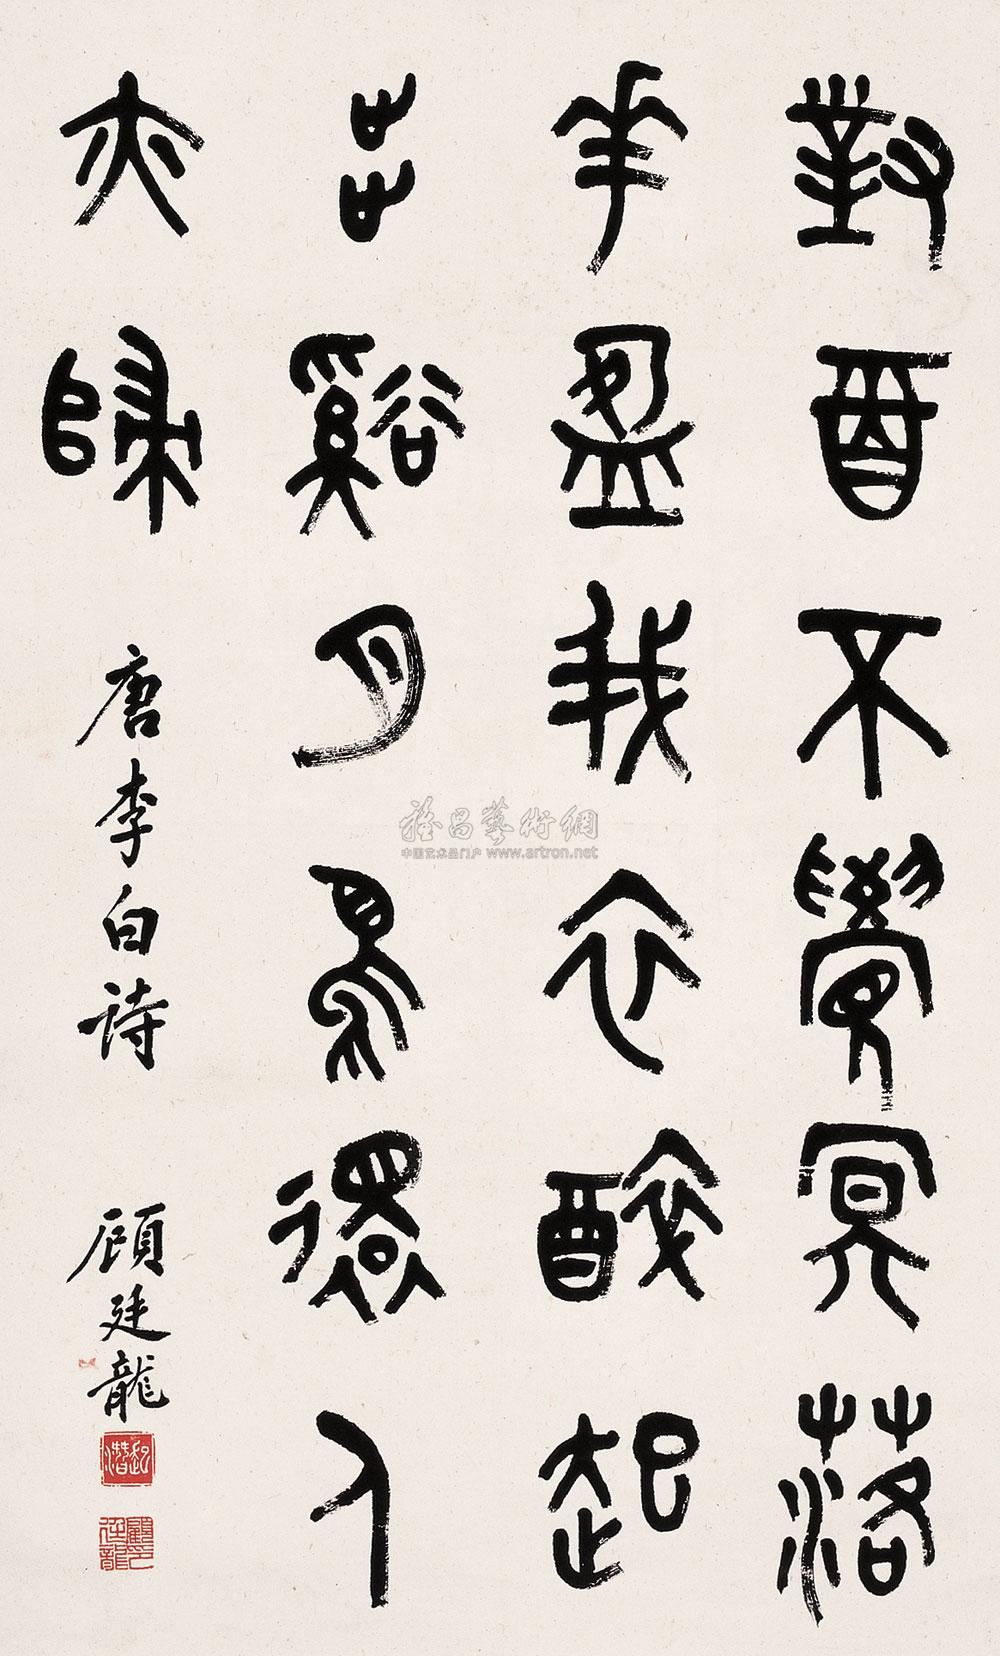 對酉不學冥落
華盈我衣醉起
步谿月鳥還人
亦歸
唐李白诗 顾廷龍
起潛
顧廷龍印
雅昌藝術網
中国艺术品门户 www.artron.net